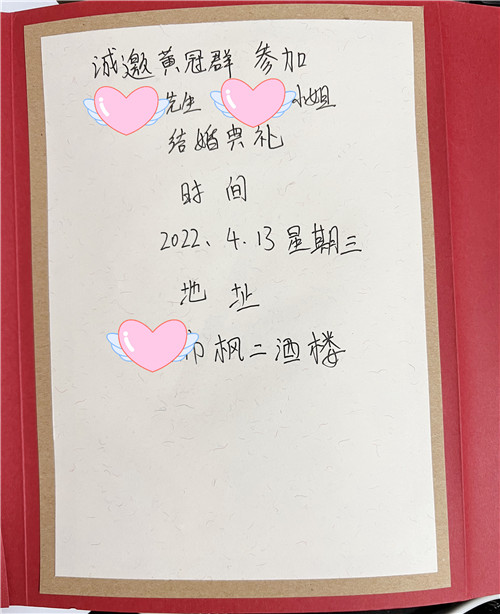 诚邀黄冠群 参加
先生 小姐
结婚典礼
时间
2022、4.13 星期三
地址
市枫二酒楼